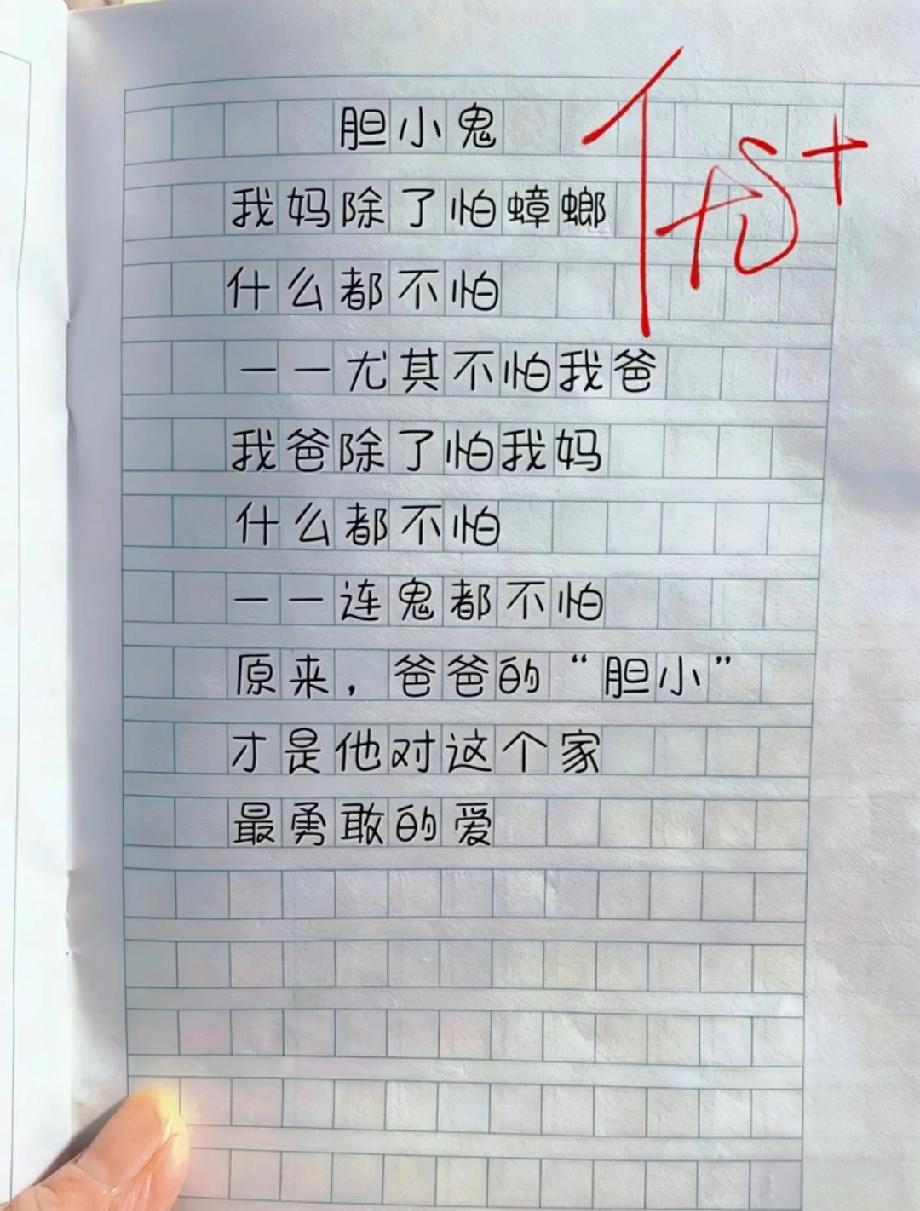 胆小鬼
优+
我妈除了怕蟑螂
什么都不怕
——尤其不怕我爸
我爸除了怕我妈
什么都不怕
——连鬼都不怕
原来，爸爸的“胆小”
才是他对这个家
最勇敢的爱